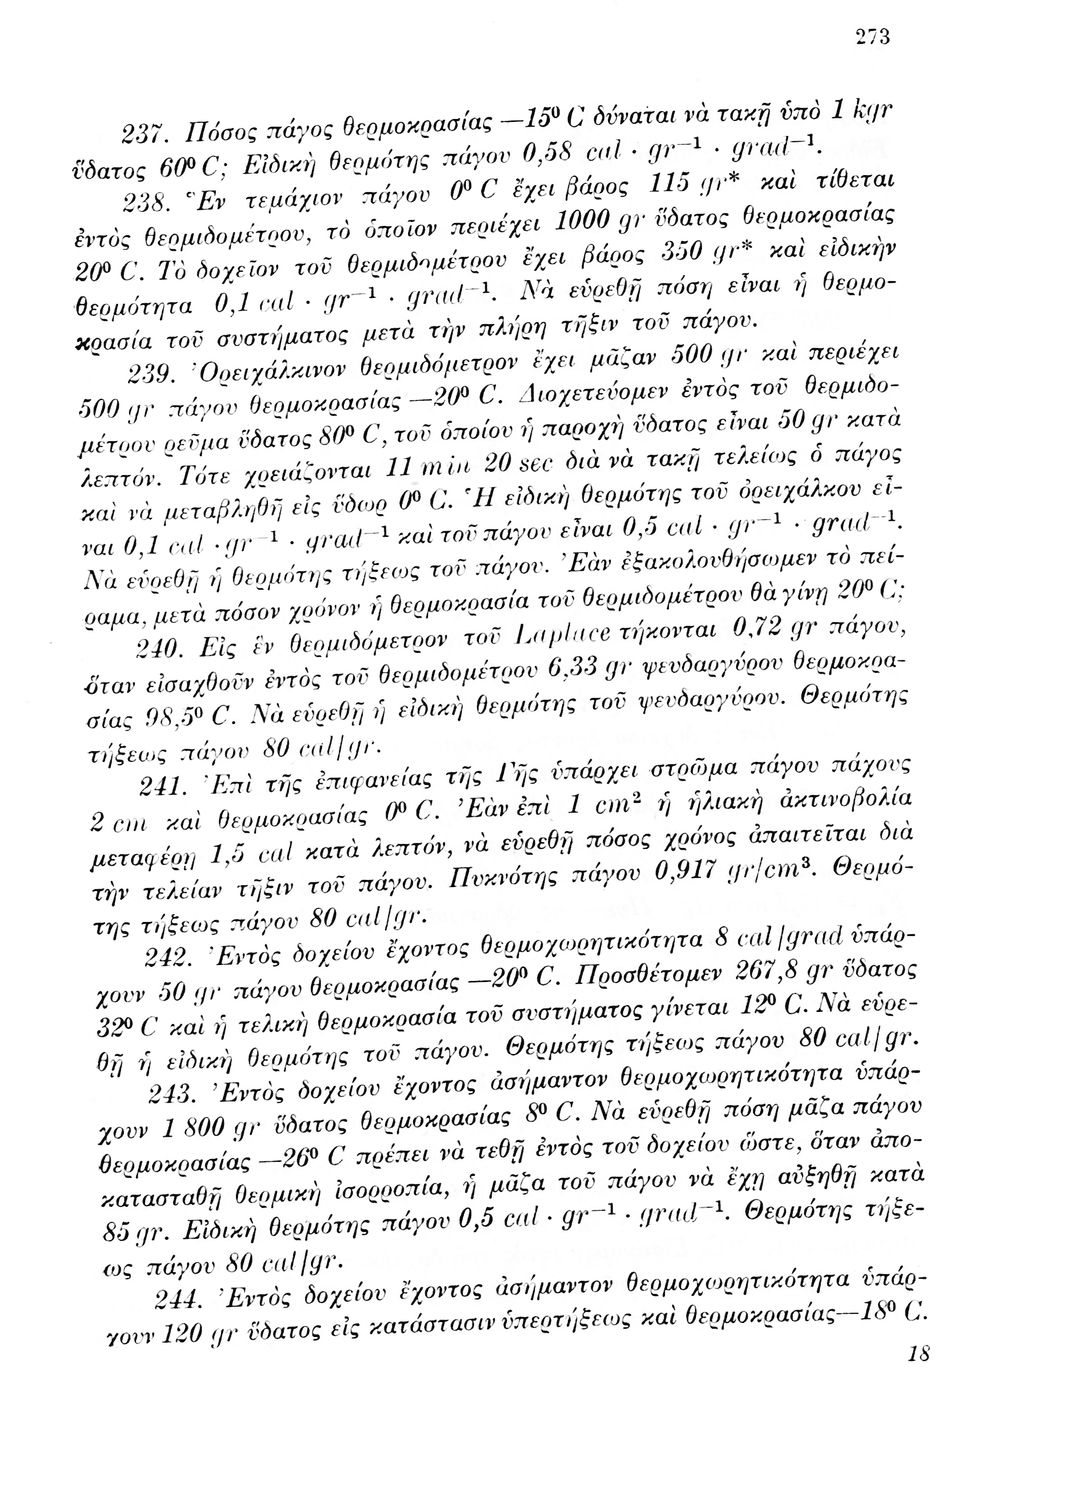 273
237. Πόσος πάγος θερμοκρασίας —15⁰ C δύναται νὰ τακῇ ὑπὸ 1 kgr
ὕδατος 60⁰ C; Εἰδικὴ θερμότης πάγου 0,58 cal · gr⁻¹ · grad⁻¹.
238. Ἓν τεμάχιον πάγου 0⁰ C ἔχει βάρος 115 gr* καὶ τίθεται
ἐντὸς θερμιδομέτρου, τὸ ὁποῖον περιέχει 1000 gr ὕδατος θερμοκρασίας
20⁰ C. Τὸ δοχεῖον τοῦ θερμιδομέτρου ἔχει βάρος 350 gr* καὶ εἰδικὴν
θερμότητα 0,1 cal · gr⁻¹ · grad⁻¹. Νὰ εὑρεθῇ πόση εἶναι ἡ θερμο-
κρασία τοῦ συστήματος μετὰ τὴν πλήρη τῆξιν τοῦ πάγου.
239. Ὀρειχάλκινον θερμιδόμετρον ἔχει μᾶζαν 500 gr καὶ περιέχει
500 gr πάγου θερμοκρασίας —20⁰ C. Διοχετεύομεν ἐντὸς τοῦ θερμιδο-
μέτρου ρεῦμα ὕδατος 80⁰ C, τοῦ ὁποίου ἡ παροχὴ ὕδατος εἶναι 50 gr κατὰ
λεπτόν. Τότε χρειάζονται 11 min 20 sec διὰ νὰ τακῇ τελείως ὁ πάγος
καὶ νὰ μεταβληθῇ εἰς ὕδωρ 0⁰ C. Ἡ εἰδικὴ θερμότης τοῦ ὀρειχάλκου εἶ-
ναι 0,1 cal · gr⁻¹ · grad⁻¹ καὶ τοῦ πάγου εἶναι 0,5 cal · gr⁻¹ · grad⁻¹.
Νὰ εὑρεθῇ ἡ θερμότης τήξεως τοῦ πάγου. Ἐὰν ἐξακολουθήσωμεν τὸ πεί-
ραμα, μετὰ πόσον χρόνον ἡ θερμοκρασία τοῦ θερμιδομέτρου θὰ γίνῃ 20⁰ C;
240. Εἰς ἓν θερμιδόμετρον τοῦ Laplace τήκονται 0,72 gr πάγου,
ὅταν εἰσαχθοῦν ἐντὸς τοῦ θερμιδομέτρου 6,33 gr ψευδαργύρου θερμοκρα-
σίας 98,5⁰ C. Νὰ εὑρεθῇ ἡ εἰδικὴ θερμότης τοῦ ψευδαργύρου. Θερμότης
τήξεως πάγου 80 cal/gr.
241. Ἐπὶ τῆς ἐπιφανείας τῆς Γῆς ὑπάρχει στρῶμα πάγου πάχους
2 cm καὶ θερμοκρασίας 0⁰ C. Ἐὰν ἐπὶ 1 cm² ἡ ἡλιακὴ ἀκτινοβολία
μεταφέρῃ 1,5 cal κατὰ λεπτόν, νὰ εὑρεθῇ πόσος χρόνος ἀπαιτεῖται διὰ
τὴν τελείαν τῆξιν τοῦ πάγου. Πυκνότης πάγου 0,917 gr/cm³. Θερμό-
της τήξεως πάγου 80 cal/gr.
242. Ἐντὸς δοχείου ἔχοντος θερμοχωρητικότητα 8 cal/grad ὑπάρ-
χουν 50 gr πάγου θερμοκρασίας —20⁰ C. Προσθέτομεν 267,8 gr ὕδατος
32⁰ C καὶ ἡ τελικὴ θερμοκρασία τοῦ συστήματος γίνεται 12⁰ C. Νὰ εὑρε-
θῇ ἡ εἰδικὴ θερμότης τοῦ πάγου. Θερμότης τήξεως πάγου 80 cal/gr.
243. Ἐντὸς δοχείου ἔχοντος ἀσήμαντον θερμοχωρητικότητα ὑπάρ-
χουν 1 800 gr ὕδατος θερμοκρασίας 8⁰ C. Νὰ εὑρεθῇ πόση μᾶζα πάγου
θερμοκρασίας —26⁰ C πρέπει νὰ τεθῇ ἐντὸς τοῦ δοχείου ὥστε, ὅταν ἀπο-
κατασταθῇ θερμικὴ ἰσορροπία, ἡ μᾶζα τοῦ πάγου νὰ ἔχῃ αὐξηθῇ κατὰ
85 gr. Εἰδικὴ θερμότης πάγου 0,5 cal · gr⁻¹ · grad⁻¹. Θερμότης τήξε-
ως πάγου 80 cal/gr.
244. Ἐντὸς δοχείου ἔχοντος ἀσήμαντον θερμοχωρητικότητα ὑπάρ-
χουν 120 gr ὕδατος εἰς κατάστασιν ὑπερτήξεως καὶ θερμοκρασίας—18⁰ C.
18